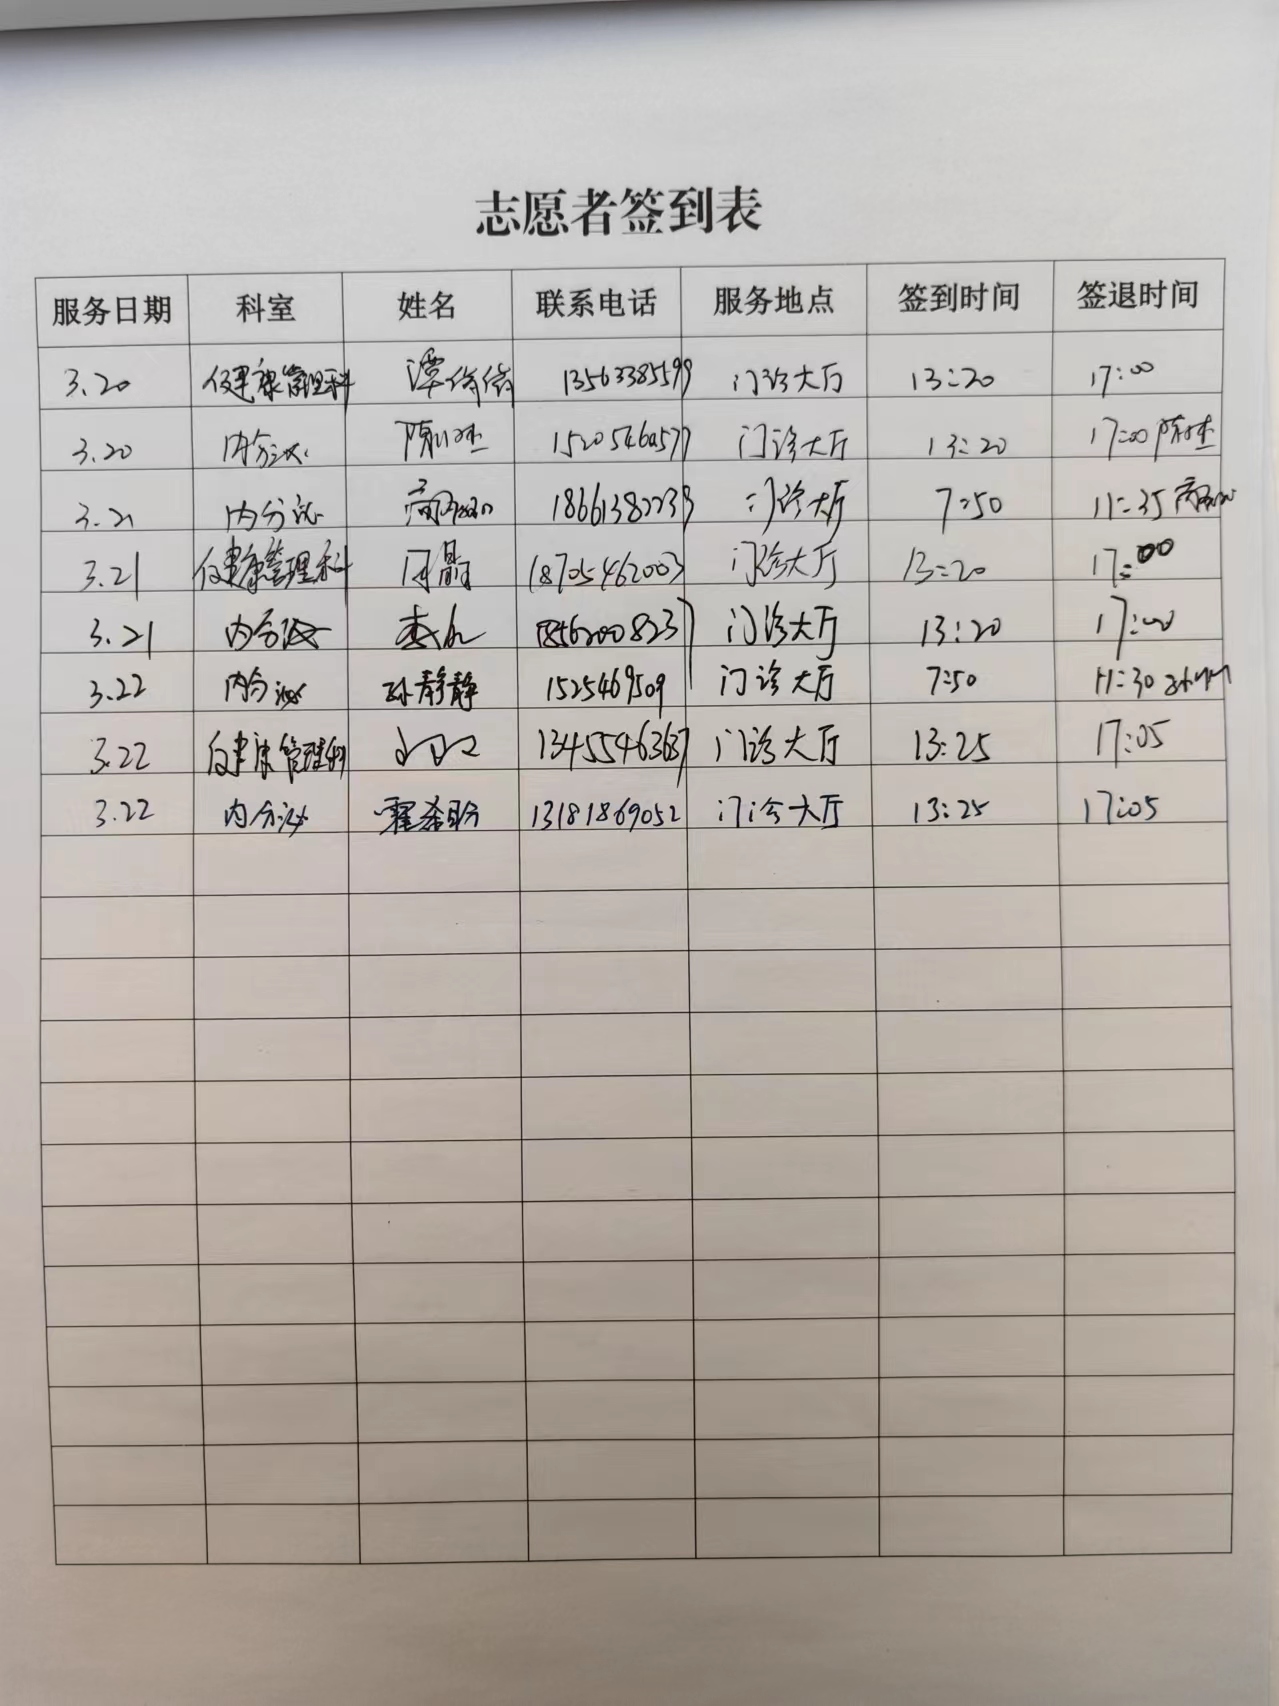 志愿者签到表
服务日期 科室 姓名 联系电话 服务地点 签到时间 签退时间
3.20 健康管理科 13563385599 门诊大厅 13:20 17:00
3.20 内分泌 门诊大厅 13:20 17:00
3.21 内分泌 门诊大厅 7:50 11:35
3.21 健康管理科 18705462003 门诊大厅 13:20 17:00
3.21 内分泌 18562008237 门诊大厅 13:20 17:00
3.22 内分泌 孙静静 1525469509 门诊大厅 7:50 11:30
3.22 健康管理科 13455463637 门诊大厅 13:25 17:05
3.22 内分泌 13181869052 门诊大厅 13:25 17:05